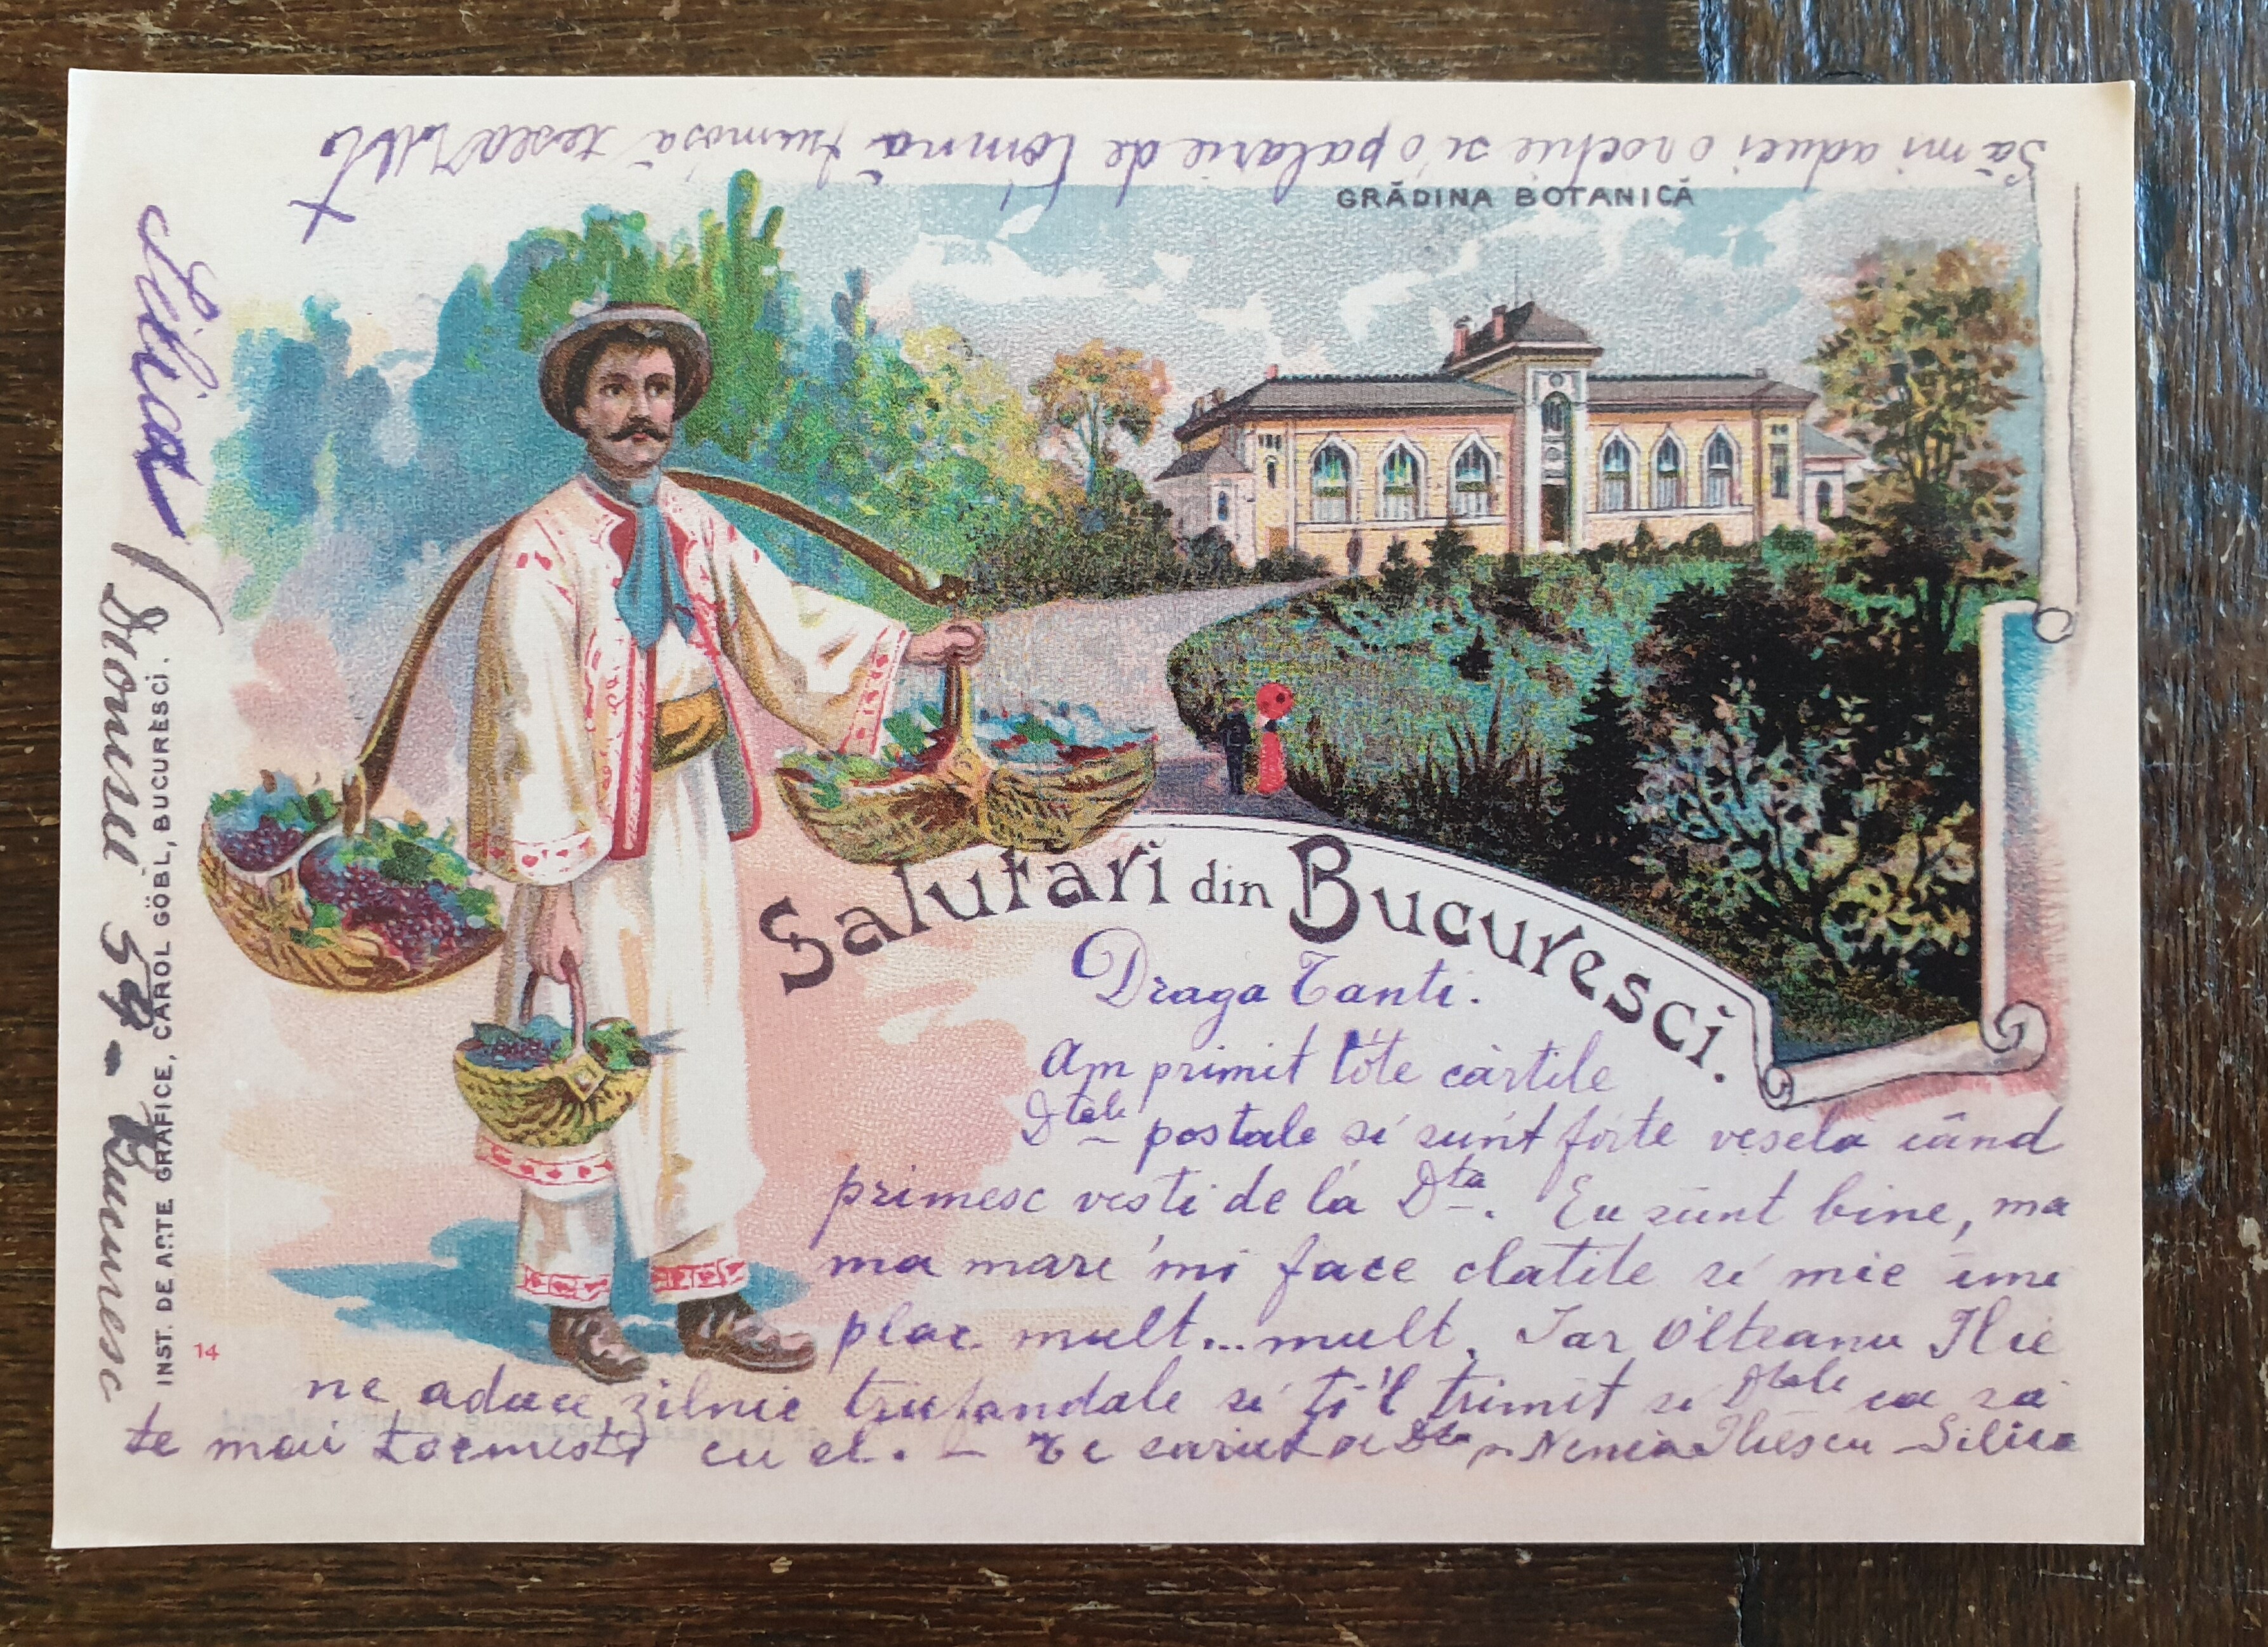 Să mi aduci o rochie si o palarie de tomnă frumósă
GRĂDINA BOTANICĂ
Salutari din Bucuresci.
Draga Tanti.
Am primit tóte cărtile
Dtale postale si sunt fórte vesela când
primesc vesti de la Dta. Eu sunt bine, ma
ma mare 'mi face clatite si mie imi
plac mult... mult. Iar Olteanu Ilie
ne aduce zilnic trufandale si ti'l trimit si Dtale ca să
te mai tocmesti cu el. – Te sarut Nenea Iliescu – Silica
Silica
Dionisie 59 - Bucuresc
INST. DE ARTE GRAFICE, CAROL GÖBL, BUCURESCI.
14